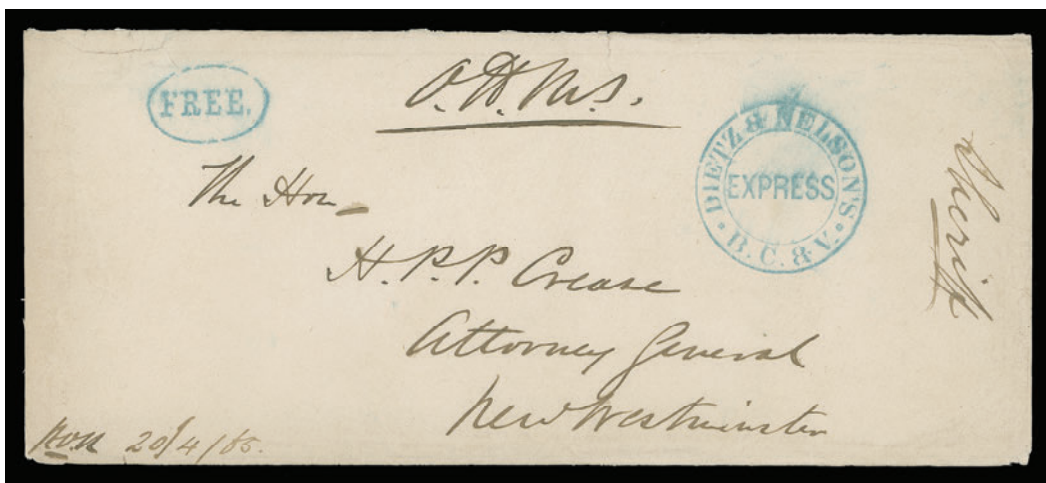 FREE.
O.H.M.S.
DIETZ & NELSON'S
EXPRESS
· B. C. & V. ·
The Hon
H. P. P. Crease
Attorney General
New Westminster
Sheriff
20/4/65.